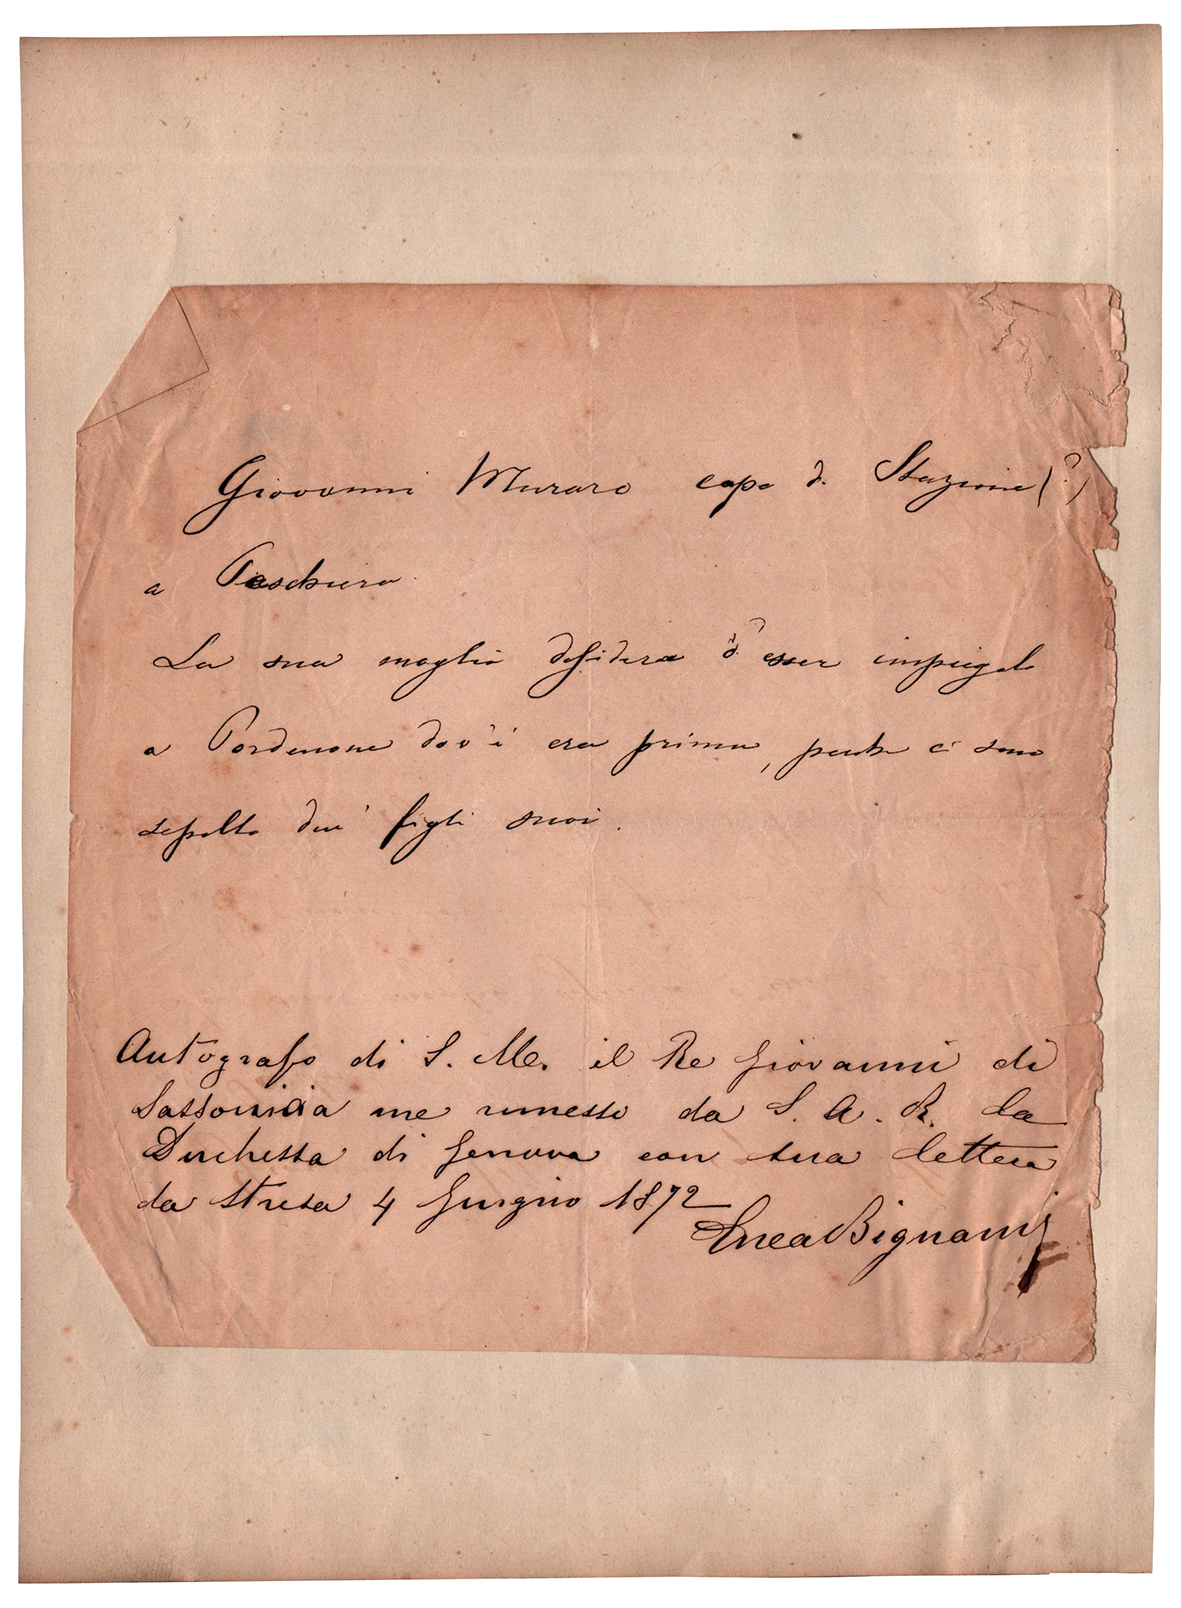 Giovanni Muraro capo d. Stazione (?)
a Peschiera
La sua moglie desidera d' esser impiegato
a Pordenone dov' era prima, perche ci sono
sepolto due figli suoi.
Autografo di S. M. il Re Giovanni di
Sassonia me rimesso da S. A. R. la
Duchessa di Genova con sua lettera
da Stresa 4 Giugno 1872
Enea Bignami